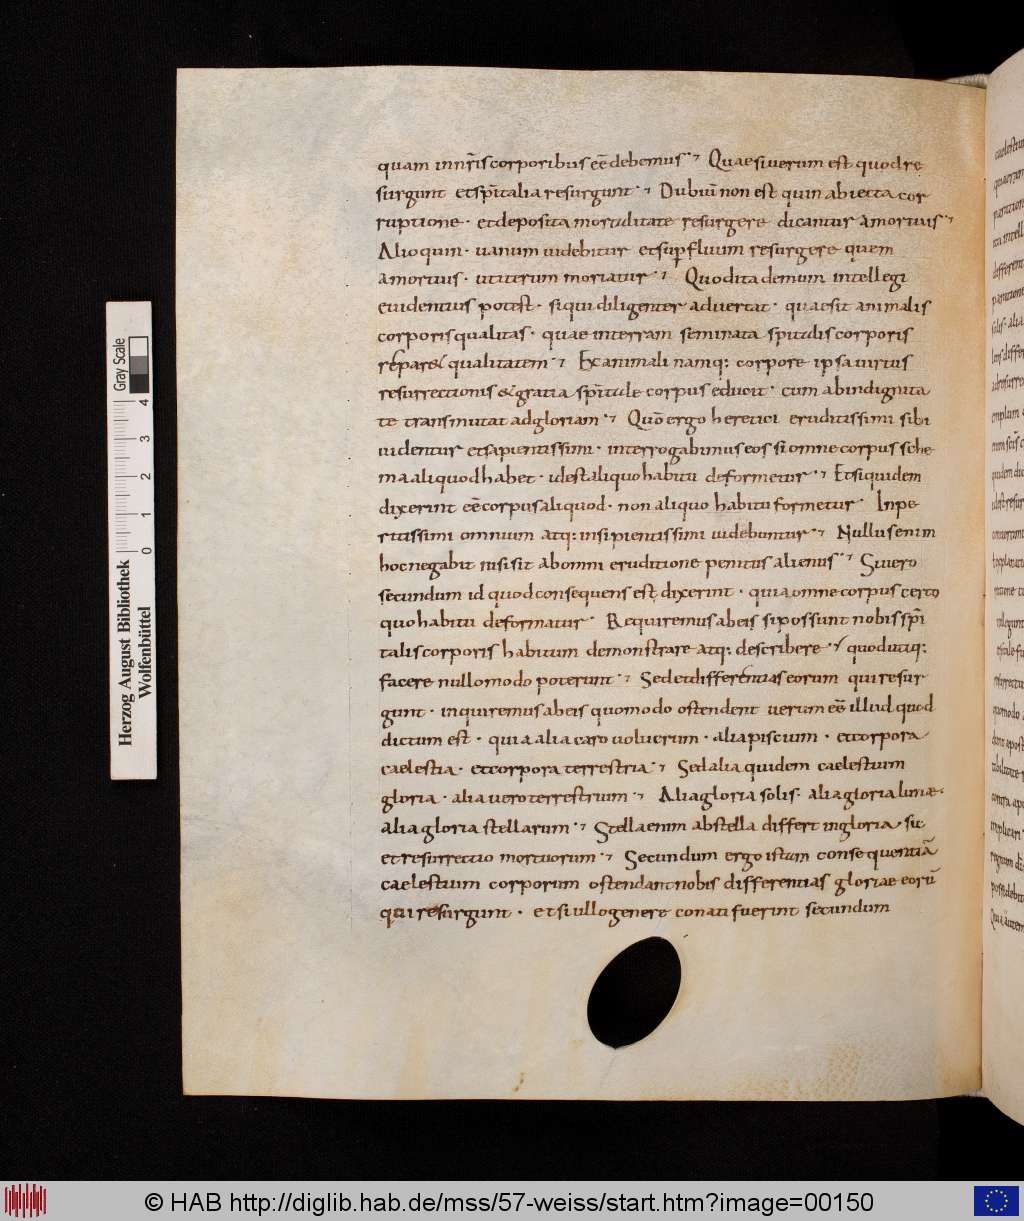 quam in nr̃is corporibus eẽ debemus· Quae si uerum est quod re
surgunt et spītalia resurgunt· Dubiū non est quin abiecta cor
ruptione· et deposita mortalitate resurgere dicantur a mortuis·
Alioquin· uanum uidebitur et supfluum resurgere quem
a mortuis· ut iterum moriatur· Quod ita demum intellegi
euidentius potest· si qui diligenter aduertat· quae sit animalis
corporis qualitas· quae in terram seminata spitalis corporis
reparet qualitatem· Ex animali namq: corpore ipsa uirtus
resurrectionis & gratia spītale corpus educit· cum ab indignita
te transmutat ad gloriam· Quō ergo heretici eruditissimi sibi
uidentur et sapientissimi· interrogabimus eos si omne corpus sche
ma aliquod habet· id est aliquo habitu deformetur· Et siquidem
dixerint eẽ corpus aliquod· non aliquo habitu formetur· Inpe
ritissimi omnium atq: insipientissimi uidebuntur· Nullus enim
hoc negabit nisi sit ab omni eruditione penitus alienus· Si uero
secundum id quod consequens est dixerint· quia omne corpus certo
quo habitu deformatur· Requiremus ab eis si possunt nobis spī
talis corporis habitum demonstrare atq: describere· quod utiq:
facere nullo modo poterunt· Sed et differentias eorum qui resur
gunt· inquiremus ab eis quomodo ostendent uerum eẽ illud quod
dictum est· quia alia caro uolucrum· alia piscium· et corpora
caelestia· et corpora terrestria· Sed alia quidem caelestium
gloria· alia uero terrestrium· Alia gloria solis· alia gloria lunae·
alia gloria stellarum· Stella enim ab stella differt in gloria· sic
et resurrectio mortuorum· Secundum ergo istam consequentiā
caelestium corporum ostendant nobis differentias gloriae eorū
qui resurgunt· et si ullo genere conati fuerint secundum
Herzog August Bibliothek
Wolfenbüttel
Gray Scale
0 1 2 3 4
© HAB http://diglib.hab.de/mss/57-weiss/start.htm?image=00150